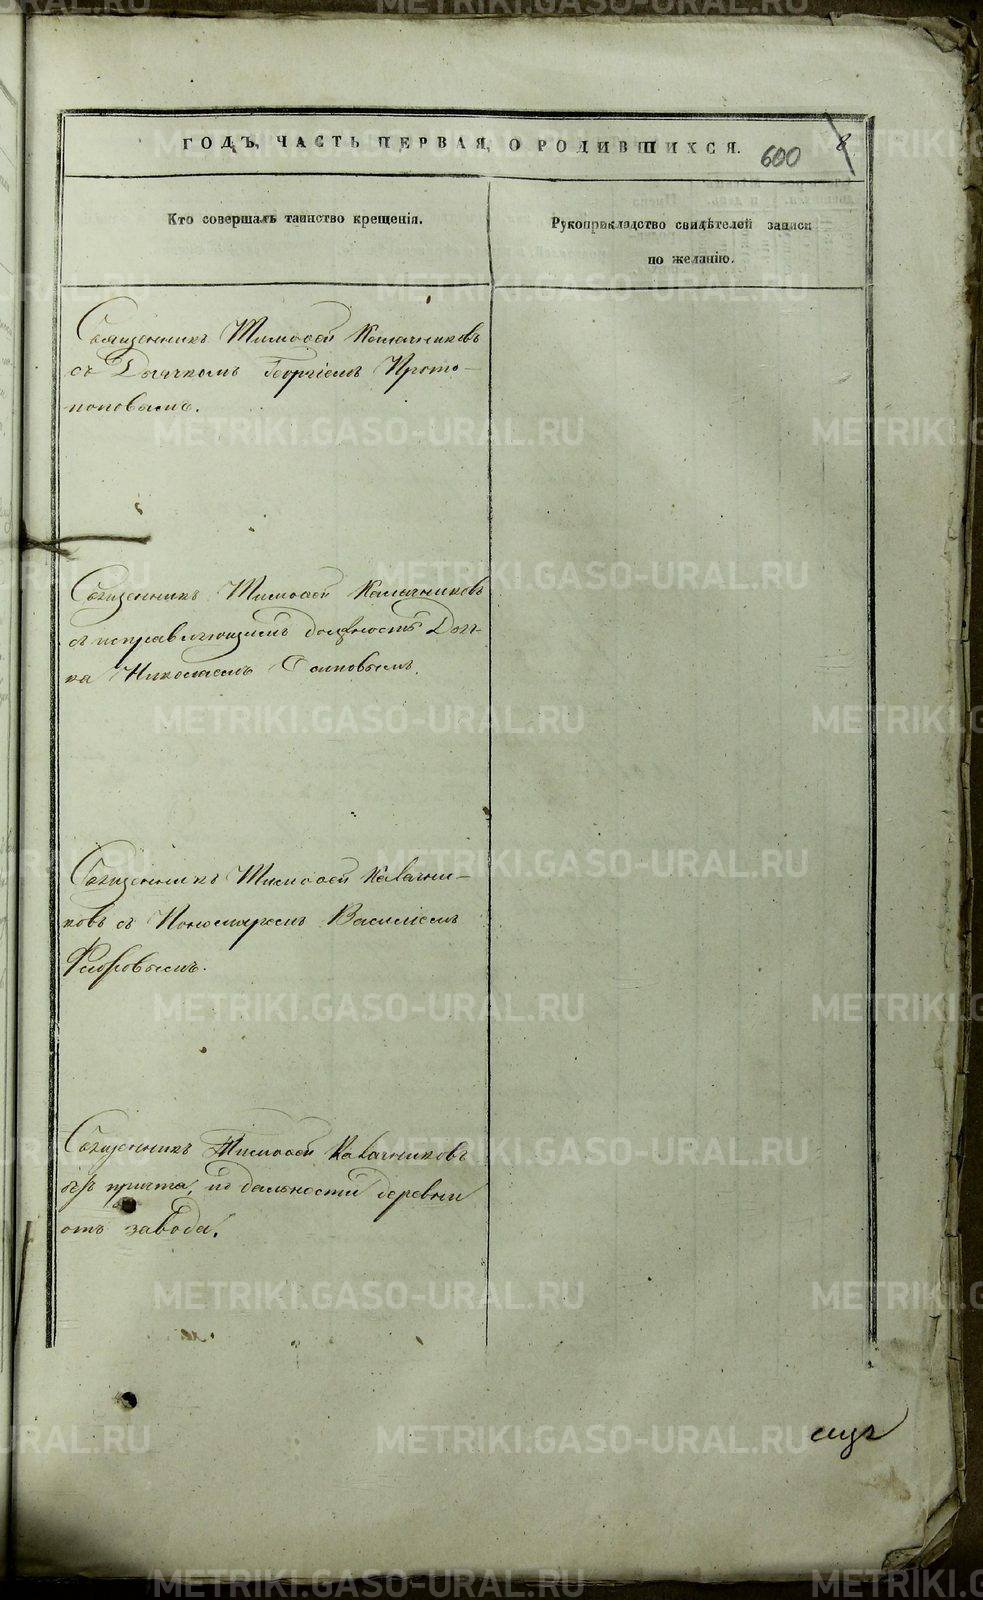 ГОДЪ, ЧАСТЬ ПЕРВАЯ, О РОДИВШИХСЯ.
600 8
Кто совершалъ таинство крещенія.
Рукоприкладство свидѣтелей записи
по желанію.
Священникъ Тимоѳей Калачниковъ
съ Дьячкомъ Георгіемъ Прото-
поповымъ.
Священникъ Тимоѳей Калачниковъ
съ исправляющимъ должность Дьяч-
ка Николаемъ Осиповымъ.
Священникъ Тимоѳей Калачни-
ковъ съ Пономаремъ Василіемъ
Флоровымъ.
Священникъ Тимоѳей Калачниковъ
безъ причта, по дальности деревни
отъ завода.
METRIKI.GASO-URAL.RU